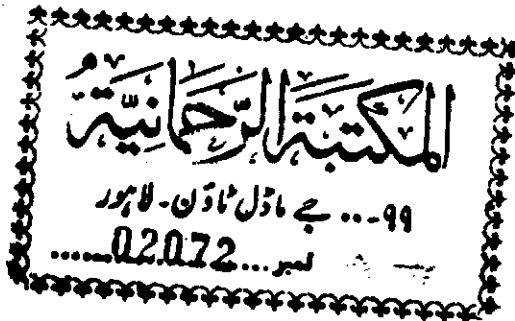 المكتبة الرحمانية
۹۹-... جے ماڈل ٹاؤن۔ لاہور
نمبر...02072......